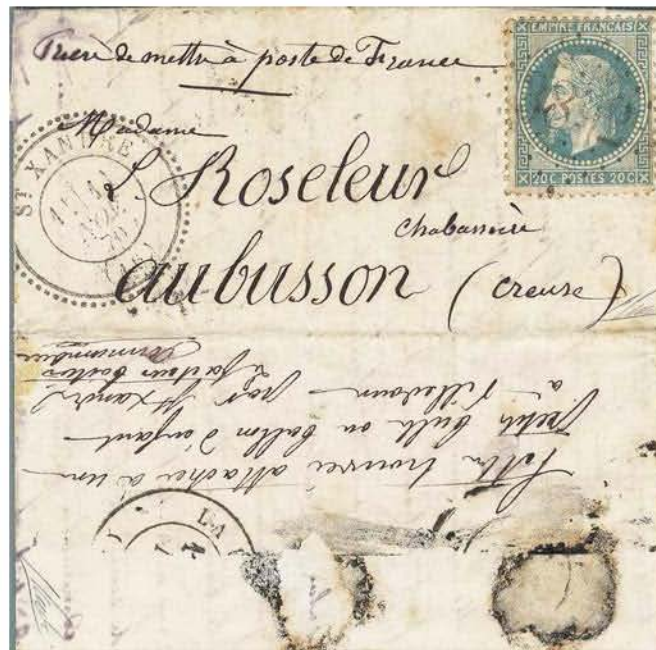 Prière de mettre à poste de France
EMPIRE FRANÇAIS
20C POSTES 20C
Madame
ST XANDRE
L. Roseleur
Chabassière
aubusson (Creuse)
Lettre trouvée attachée à un
Petit bulle ou ballon d'enfant
à Villedoux par
Le facteur boitier St Xandre
LA